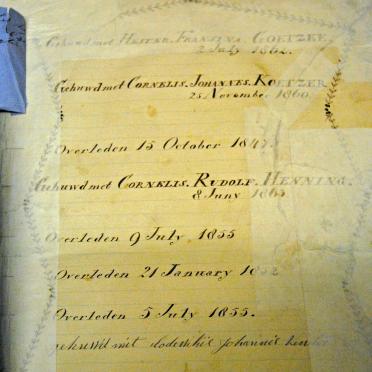 Gehuwd met HESTER. FRANSINA. COETZEE.
2 July 1862.
Gehuwd met CORNELIS. JOHANNES. KOETZER
25 Novembe. 1860.
Overleden 15 October 1847.
Gehuwd met CORNELIS. RUDOLF. HENNING.
8 Juny 1865
Overleden 9 July 1855
Overleden 21 January 18
Overleden 5 July 1855.
gehuwd met Johannes